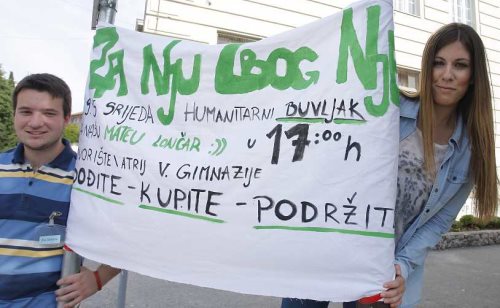 ZA NJU ZBOG NJE
9.5 SRIJEDA HUMANITARNI BUVLJAK
NAŠU MATEU LONČAR :)) U 17:00 h
DVORIŠTE\ATRIJ V. GIMNAZIJE
DOĐITE - KUPITE - PODRŽITE